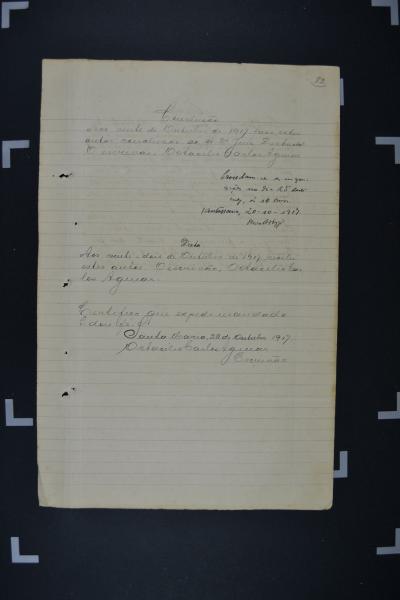 Conclusão
Aos vinte de Outubro de 1917 faço estes
autos conclusos ao Sr. Dr. Juiz
O escrivão, Octacilio Carlos Aguiar
Procedam-se a
no dia 25 do
Santa Maria, 20-10-1917
Data
Aos vinte e dois de Outubro de 1917, recebi
estes autos. O escrivão, Octacilio Car-
los Aguiar.
Certifico que expedi mandado
E dou fé.
Santa Maria, 22 de Outubro 1917
Octacilio Carlos Aguiar
Escrivão